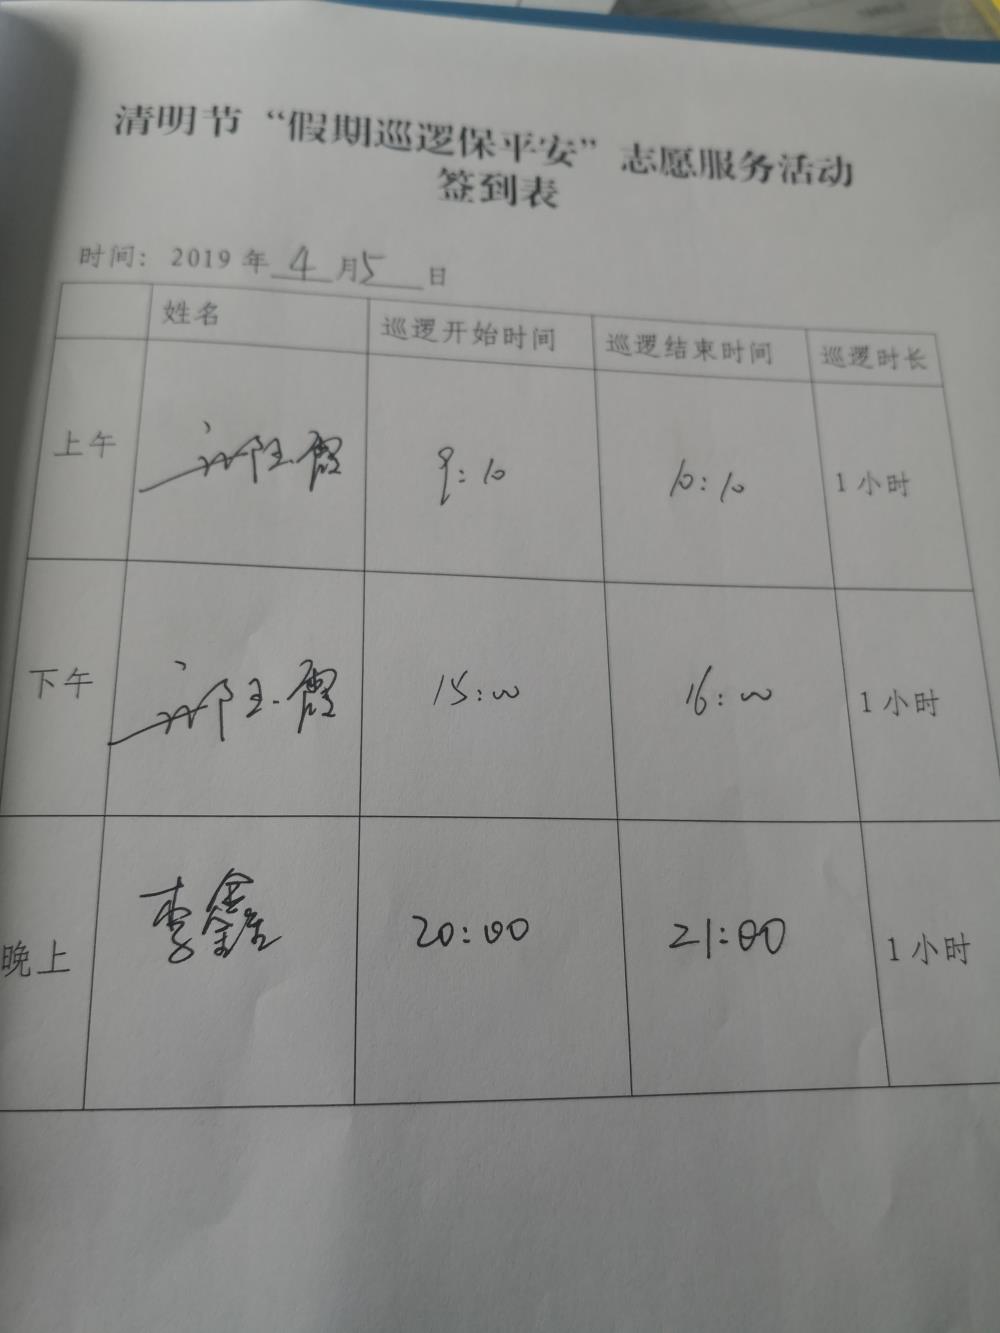 清明节“假期巡逻保平安”志愿服务活动
签到表
时间： 2019 年 4 月 5 日
姓名 巡逻开始时间 巡逻结束时间 巡逻时长
上午 9:10 10:10 1 小时
下午 15:00 16:00 1 小时
晚上 李鑫 20:00 21:00 1 小时